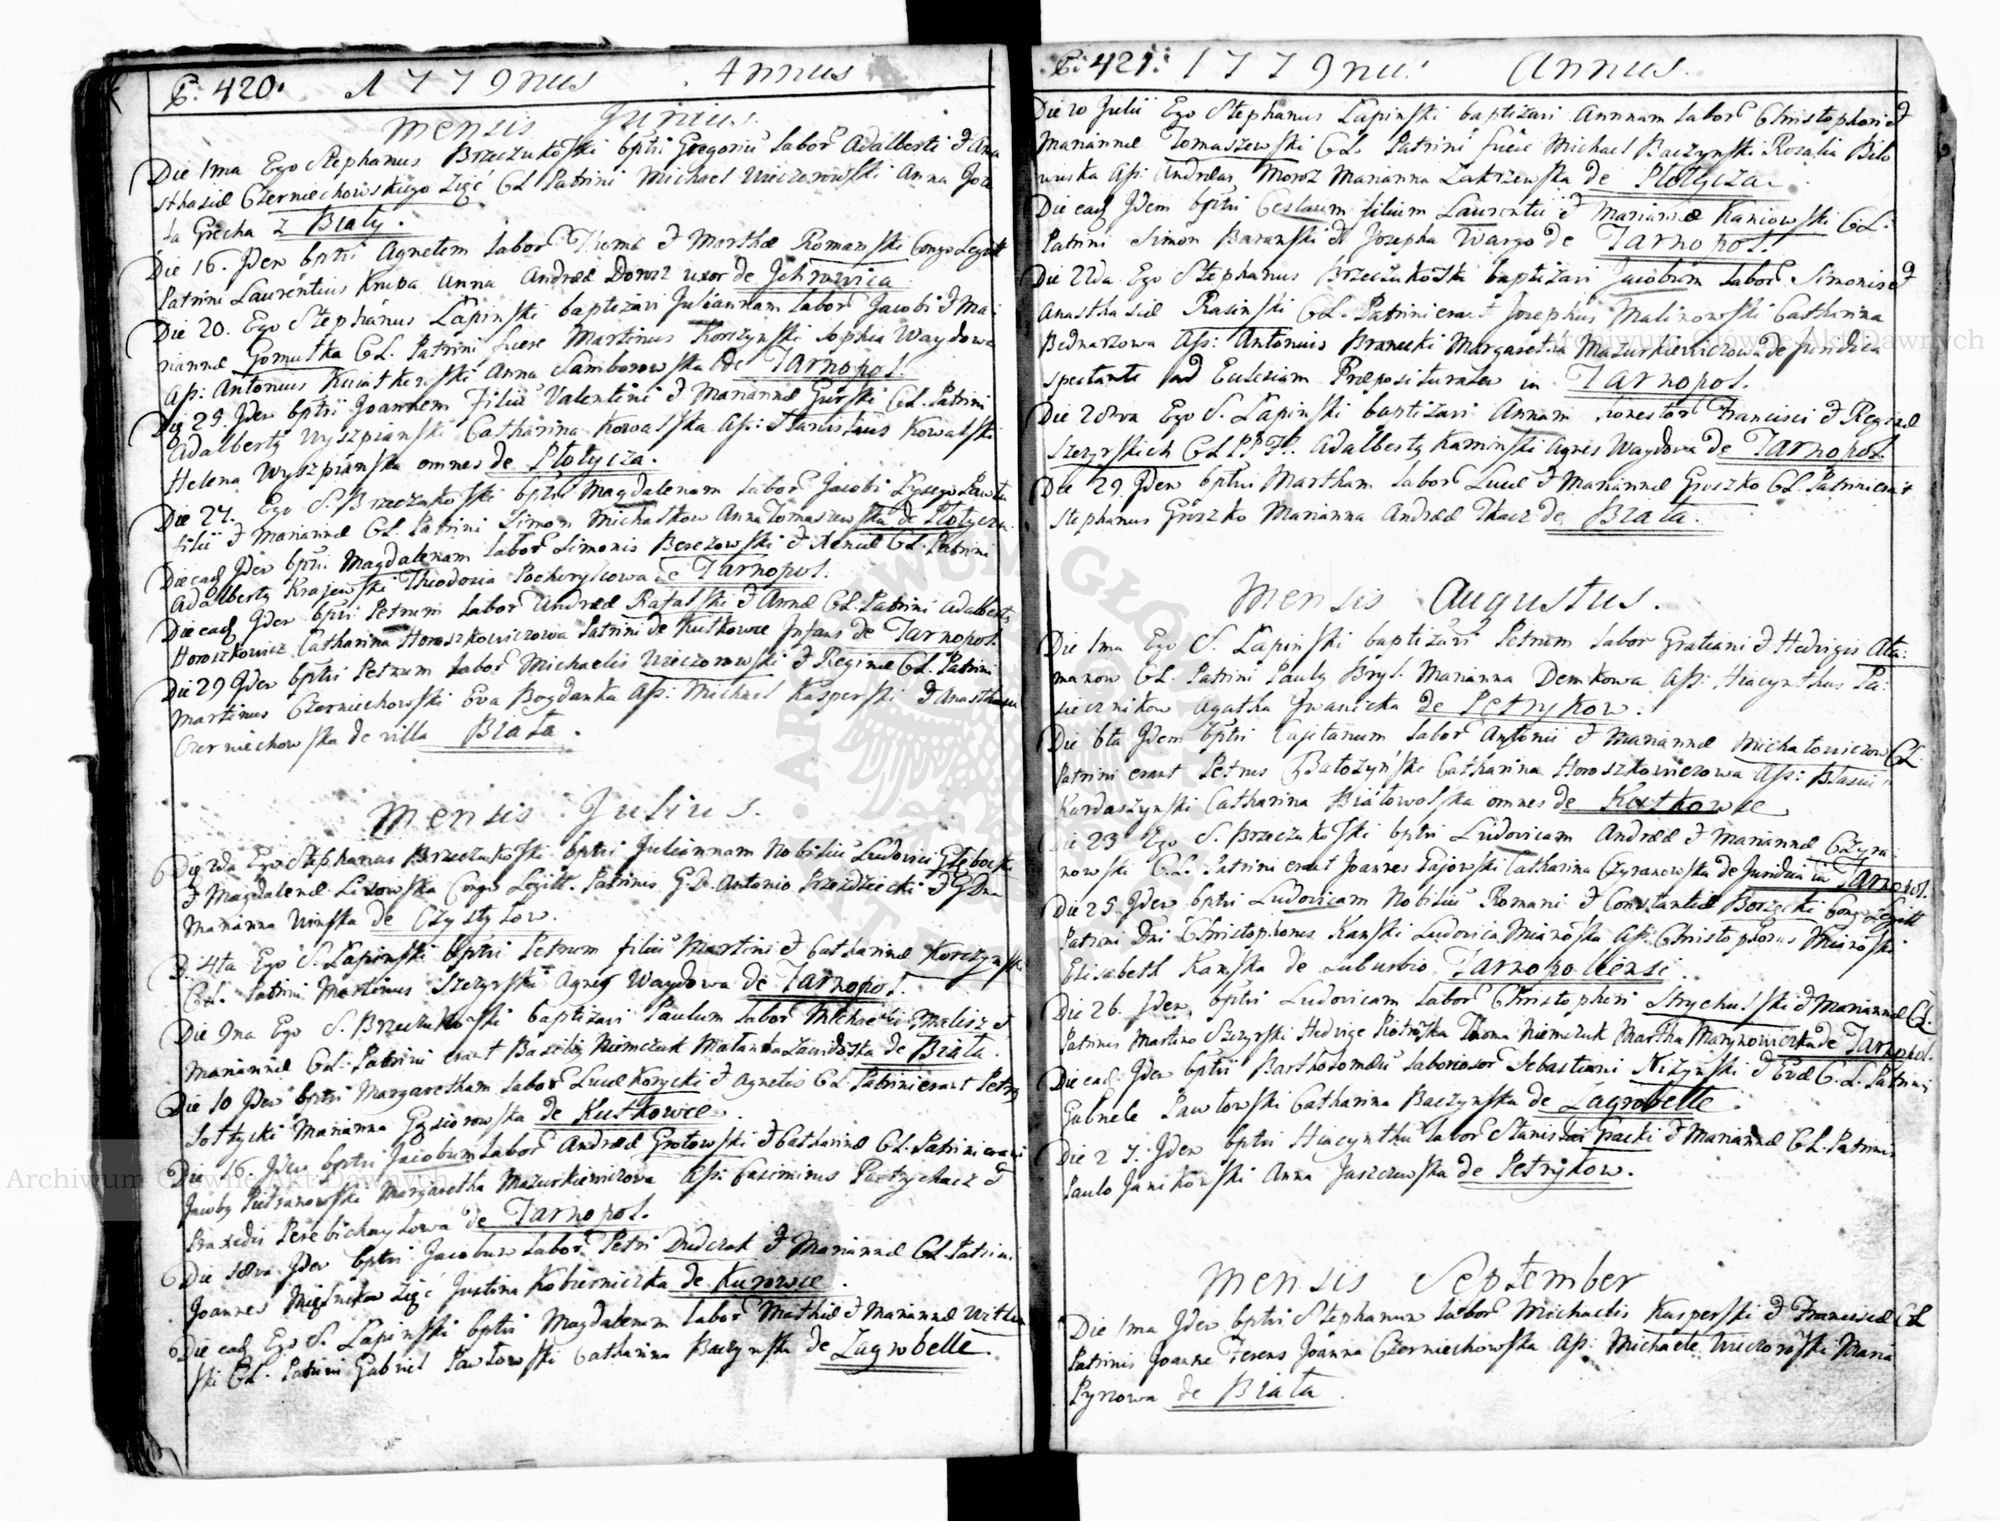 P. 420. 1779nus Annus
Mensis Junius.
Die 1ma Ego Stephanus Brzeczukoſki bptzi Gregoriũ labor Adalberti & Ana
sthasiæ Czerniechowskiego Zięć CL Patrini Michael Wieczorowſki Anna Joze
fa Grecka z Biały.
Die 16. Jdem bptzi Agnetem labor Thomæ & Marthæ Romanſki Congo Legitt
Patrini Laurentius Krupa Anna Andreæ Dorosz uxor de Jchrowica
Die 20. Ego Stephanus Łapinſki baptizavi Juliannam labor Jacobi & Ma:
riannæ Gomułka CL. Patrini fuere Martinus Korczynſki Sophia Waydowa
Aſs: Antonius Kwiatkowſki Anna Samborowſka de Tarnopol.
Die 25. Jdem bptzi Joannem filiũ Valentini & Mariannæ Gurſki CL. Patrini
Adalberty Wyszpianſki Catharina Kowalſka Aſs: Stanislaus Kowalſki
Helena Wyszpianſka omnes de Płotycza.
Die 27. Ego S. Brzeczukoſki bptzi Magdalenam labor Jacobi Łysego Pawła
filii & Mariannæ CL. Patrini Simon Michałkow Anna Tomaszewſka de Płotycza
Die ead Jdem bptzi Magdalenam labor Simonis Berezowſki & Xeniæ CL. Patrini
Adalberty Krajewſki Theodozia Pocheryłowa de Tarnopol.
Die ead Jdem bptzi Petrum labor Andreæ Rafalſki & Annæ CL. Patrini Adalberty
Horoszkowicz Catharina Horoszkowiczowa Patrini de Kutkowce Jnfans de Tarnopol.
Die 29 Jdem bptzi Petrum labor Michaelis Wieczorowſki & Reginæ CL. Patrini
Martinus Czerniechowſki Eva Bogdanka Aſs: Michael Kasperſki & Anasthasia
Czerniechowſka de villa Biała.
Mensis Julius.
Die 2da Ego Stephanus Brzeczukoſki bptzi Juliannam Nobiliũ Ludovici Głęboçki
& Magdalenæ Lisowſka Congo Legitt. Patrinis G.D. Antonio Przezdziecki & GDna
Marianna Winſka de Czystyłow.
D. 4ta Ego S. Łapinſki bptzi Petrum filiũ Martini & Catharinæ Korczynſki
CL. Patrini Martinus Szczyrſki Agnes Waydowa de Tarnopol.
Die 9na Ego S. Brzeczukoſki baptizavi Paulum labor Michaelis Malisz &
Mariannæ CL. Patrini erant Basili Niemczuk Małanka Zawidoſka de Biała.
Die 10 Jdem bptzi Margaretham labor Lucæ Koryçki & Agnetis CL. Patrini erant Petry
Sołtyçki Marianna Gąsiorowſka de Kutkowce.
Die 16. Jdem bptzi Jacobum labor Andreæ Grotowſki & Catharinæ CL. Patrini erant
Jacoby Pietranowſki Margaretha Mazurkiewiczowa Aſs: Casimirus Pietrychacz &
Praxedis Perebichaylowa de Tarnopol.
Die 18va Jdem bptzi Jacobum labor Petri Dudczak & Mariannæ CL. Patrini
Joannes Mięſnikow Zięć Justina Kobierniczka de Kurowce.
Die ead Ego S. Łapinſki bptzi Magdalenam labor Mathiæ & Mariannæ Witkow
ſki CL. Patrini Gabriel Pawłowſki Catharina Baczynſka de Zagrobelle.
P. 421. 1779nus Annus.
Die 20 Julii Ego Stephanus Łapinſki baptizavi Annnam labor Christophori &
Mariannæ Tomaszewſki CL. Patrini fuere Michael Baczynſki Rosalia Bilo
wuska Aſs: Andreas Moroz Marianna Zakrzewſka de Płotycza.
Die ead Jdem bptzi Ceslaum filium Laurentii & Mariannæ Kaniowſki CL:
Patrini Simon Baranſki & Jozepha Wargo de Tarnopol.
Die 22da. Ego Stephanus Brzeczukoſki baptizavi Jacobum labor Simonis &
Anasthasiæ Rasinſki CL. Patrini erant Josephus Malinowſki Catharina
Bednarzowa Aſs: Antonius Braneçki Margaretha Mazurkiewiczowa de juridica
spectante ad Eclesiam Præposituralem in Tarnopol.
Die 28va Ego S. Łapinſki baptizavi Annam honestor Francisci & Reginæ
Szczyrſkich CL PP Ft. Adalberty Kaminſki Agnes Waydowa de Tarnopol
Die 29. Jdem bptzi Martham labor Lucæ & Mariannæ Groszko CL. Patrini erant
Stephanus Groszko Marianna Andreæ Tkacz de Biała.
Mensis Augustus.
Die 1ma Ego S. Łapinſki baptizavi Petrum labor Gratiani & Hedvigis Ata:
manow CL. Patrini Pauly Bryl Marianna Demkowa Aſs: Hiacynthus Pa:
siecznikow Agatha Jwanicka de Petrykow.
Die 6ta Jdem bptzi Cajetanum labor Antonii & Mariannæ Michałowiczow CL.
Patrini erant Petrus Białozynſki Catharina Horoszkowiczowa Aſs: Blasius
Kardaszynſki Catharina Białowolſka omnes de Kutkowce
Die 23 Ego S. Brzeczukoſki bptzi Ludovicam Andreæ & Mariannæ Czyra
nowski CL. Patrini erant Joannes Gajowſki Catharina Czyranowſka de Juridica in Tarnopol.
Die 25. Jdem bptzi Ludovicam Nobiliũ Romani & Constantiæ Borzęcki Congo Legitt
Patrini Dni Christophorus Kanſki Ludovica Mianoſka Aſs: Christophorus Mianoſki
Elisabeth Kanſka de Suburbio Tarnopoliensi.
Die 26. Jdem bptzi Ludovicam labor Christophori Strychalſki & Mariannæ CL.
Patrinis Martino Szczyrſki Hedvige Piotroſka Thoma Niemczuk Martha Marynowiczka de Tarnopol.
Die ead. Jdem bptzi Bartholomæũ laboriosor Sebastiani Niżynſki & Evæ C.L. Patrinis
Gabriele Pawłowſki Catharina Baczynſka de Zagrobelle.
Die 27. Jdem bptzi Hiacynthũ labor Stanislai Graçki & Mariannæ CL. Patrinis
Paulo Janikowſki Anna Jaszczewſka de Petrykow.
Mensis September
Die 1ma Jdem bptzi Stephanum labor Michaelis Kasperſki & Franciscæ CL
Patrinis Joanne Ferens Joanna Czerniechowſka Aſs: Michaele Wieczoroſki Maria
Pyrzowa de Biała.
Archiwum Główne Akt Dawnych
Archiwum Główne Akt Dawnych